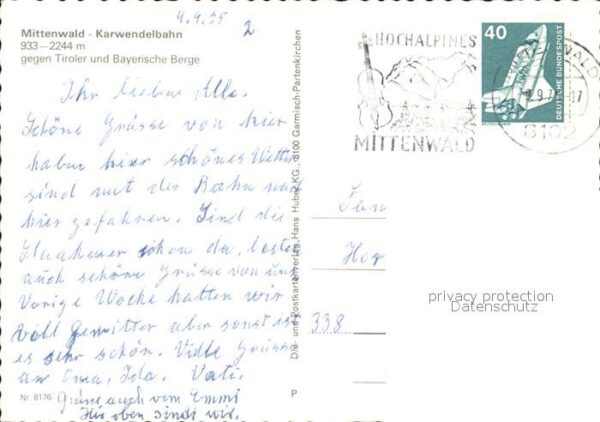 4.9.75
2
Mittenwald - Karwendelbahn
933—2244 m
gegen Tiroler und Bayerische Berge
Ihr lieben Alle.
Schöne Grüsse von hier
haben hier schönes Wetter
sind mit der Bahn
hier gefahren. Sind die
schon da, besten
auch schöne Grüsse von uns
Vorige Woche hatten wir
voll Gewitter aber sonst ist
es sehr schön. Viele Grüsse
an Oma, Ida. Vati.
Grüsse auch vom Emmi
Hir oben sinds wir.
Nr. 8176
P
Druck- und Postkartenverlag Hans Huber KG., 8100 Garmisch-Partenkirchen
HOCHALPINES
MITTENWALD
40
DEUTSCHE BUNDESPOST
Fam
338
privacy protection
Datenschutz